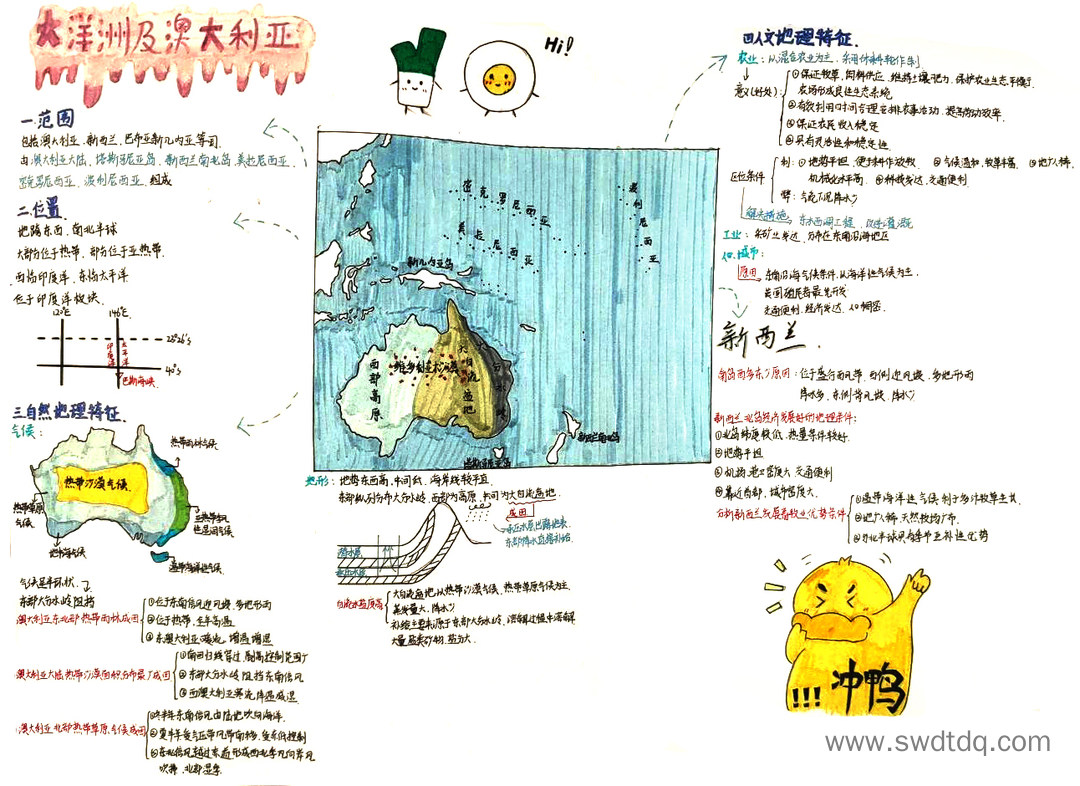 大洋洲及澳大利亚
Hi!
一范围
包括澳大利亚、新西兰、巴布亚新几内亚等国
由澳大利亚大陆、塔斯马尼亚岛、新西兰南北岛、美拉尼西亚、
密克罗尼西亚、波利尼西亚组成
二位置
地跨东西、南北半球
大部分位于热带,部分位于亚热带.
西临印度洋,东临太平洋
位于印度洋板块.
120°E 146°E
23°26's
40°s
印度洋
太平洋
巴斯海峡
三自然地理特征.
气候:
热带雨林气候.
热带沙漠气候.
热带草原气候.
地中海气候
温带海洋性气候.
气候呈半环状.
东部大分水岭阻挡
澳大利亚东北部热带雨林成因
①位于东南信风迎风坡、多地形雨
②位于热带、全年高温
③东澳大利亚暖流,增温增湿
澳大利亚大陆热带沙漠面积分布最广成因
①南回归线穿过 副高控制范围广
②东部大分水岭阻挡东南信风
③西澳大利亚寒流降温减湿
澳大利亚北部热带草原气候成因
①冬半年东南信风由陆地吹向海洋.
③东北信风越过赤道形成西北季风向岸风
吹拂,北部湿季.
密克罗尼西亚
波利尼西亚
美拉尼西亚
新几内亚岛
西部高原
维多利亚大沙漠
大自流盆地
大分水岭
新西兰南北岛
塔斯马尼亚岛
地形:地势东西高,中间低、海岸线较平直.
东部纵列分布大分水岭,西部为高原,中间为大自流盆地.
成因
潜水层
承压水层
东部降水直接补给.
自流水盐度高
大自流盆地以热带沙漠气候、热带草原气候为主.
蒸发量大,降水少
补给主要来源于东部大分水岭,
大量盐类矿物,盐分大.
四人文地理特征.
农业:以混合农业为主,
意义(好处):
①保证牧草、饲料供应,维持土壤肥力,保护农业生态平衡于
农场形成良性生态系统
②有效利用时间合理安排农事活动,提高劳动效率.
③保证农民收入稳定
④具有灵活性和稳定性
区位条件
利:①地势平坦,便于耕作放牧 ②气候温和,牧草丰富. ③地广人稀.
机械化水平高. 交通便利
弊:气候干旱降水少
解决措施 东水西调工程、
工业:采矿业发达,分布在东南沿海地区
人口.城市:
原因
东南沿海气候条件以海洋性气候为主.
英国殖民者最先开发
交通便利.经济发达、人口稠密.
新西兰.
南岛西多东少原因:位于盛行西风带,西侧迎风坡,多地形雨
降水多,东侧背风坡,降水少
新西兰北岛经济发展好的地理条件:
①北岛纬度较低,热量条件较好.
②地势平坦
③机场、港口密度大,交通便利
④靠近首都,城市密度大.
分析新西兰发展畜牧业优势条件
①温带海洋性气候利于多汁牧草生长.
②地广人稀,天然牧场广布.
③与北半球具有季节互补性优势
!!!冲鸭
www.swdtdq.com